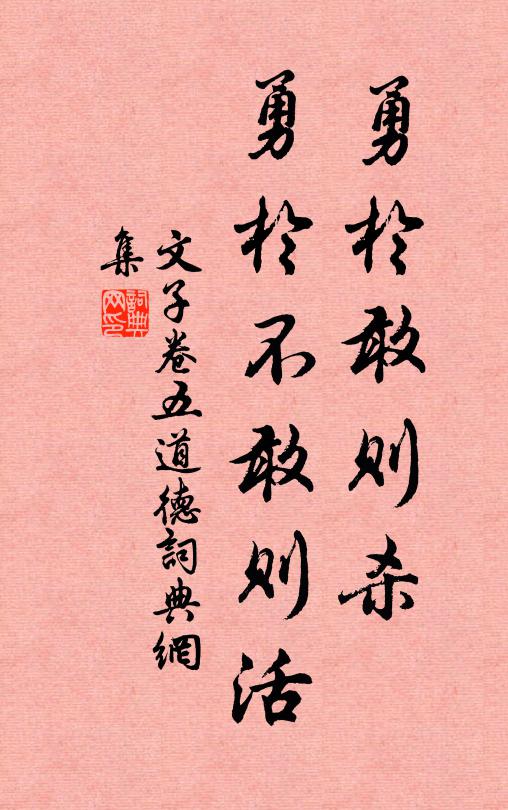 勇於敢則杀
勇於不敢則活
文子卷五道德詞典網
集
詞典
网印